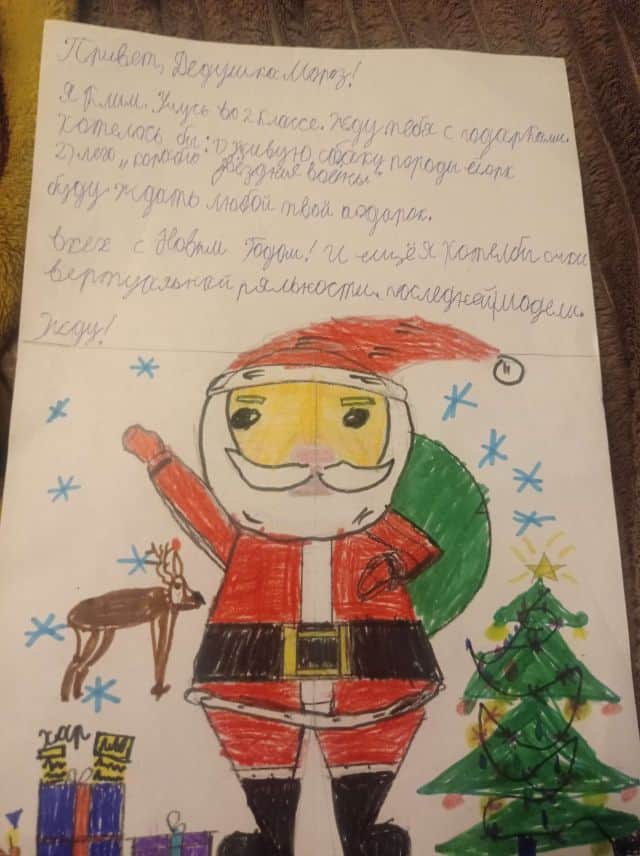 Привет, Дедушка Мороз!
Я Клим. Учусь во 2 классе. Жду тебя с подарками.
Хотелось бы: 1) живую собаку породы йорк
2) лего „корабль Звёздные воены".
буду ждать любой твой подарок.
всех с Новым Годом! и ещё я хотелбы очки
вертуальной ряльности. последней модели.
Жду!
хар